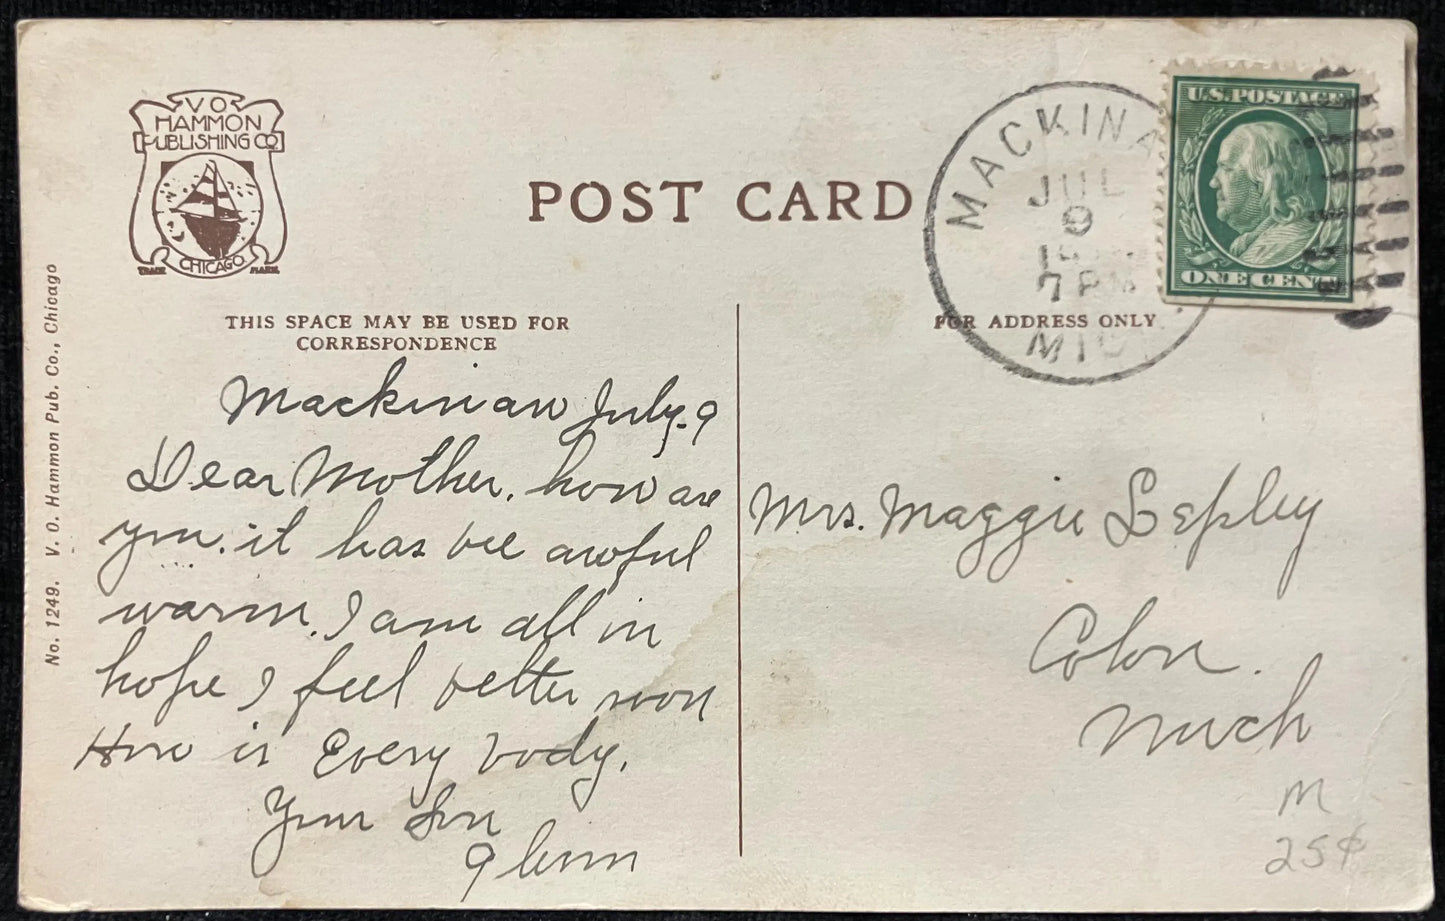 V O
HAMMON
PUBLISHING CO
CHICAGO
TRADE MARK
POST CARD
MACKINA
JUL
9
7 PM
MICH
U.S. POSTAGE
ONE CENT
THIS SPACE MAY BE USED FOR
CORRESPONDENCE
FOR ADDRESS ONLY
No. 1249. V. O. Hammon Pub. Co., Chicago
Mackinaw July. 9
Dear Mother. how are
you. it has bee awful
warm. I am all in
hope I feel better soon
How is Every body.
Your Son
Glenn
Mrs. Maggie Lepley
Colon.
Mich
M
25¢